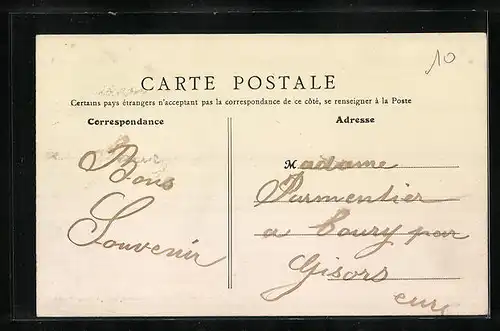 10
CARTE POSTALE
Certains pays étrangers n'acceptant pas la correspondance de ce côté, se renseigner à la Poste
Correspondance
Bons
Souvenir
Adresse
Madame
Parmentier
a Coury par
Gisors
eure